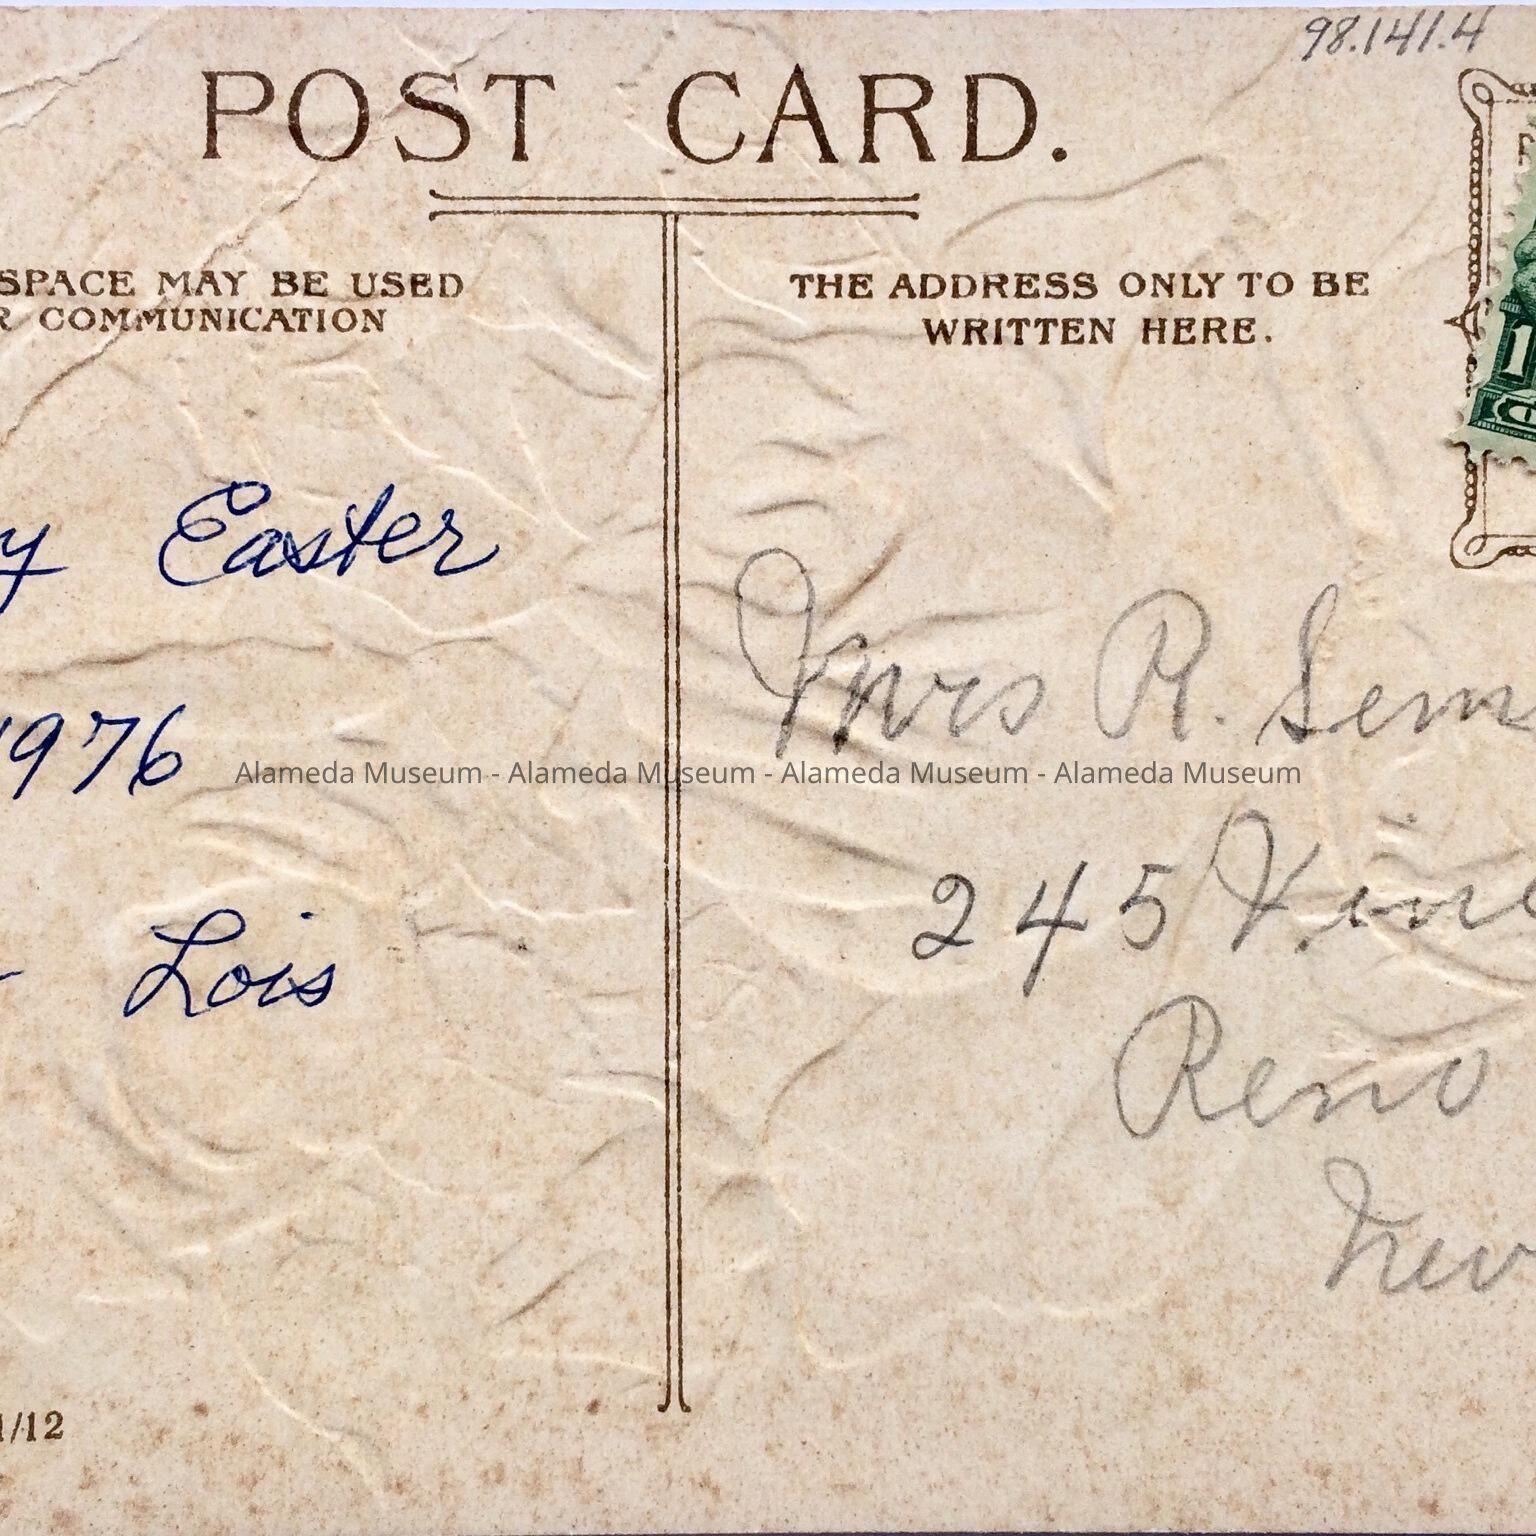 98.141.4
POST CARD.
SPACE MAY BE USED
R COMMUNICATION
THE ADDRESS ONLY TO BE
WRITTEN HERE.
1
y Easter
1976
Lois
Mrs R. Sem
245 Vine
Reno
Nev
Alameda Museum - Alameda Museum - Alameda Museum - Alameda Museum
1/12